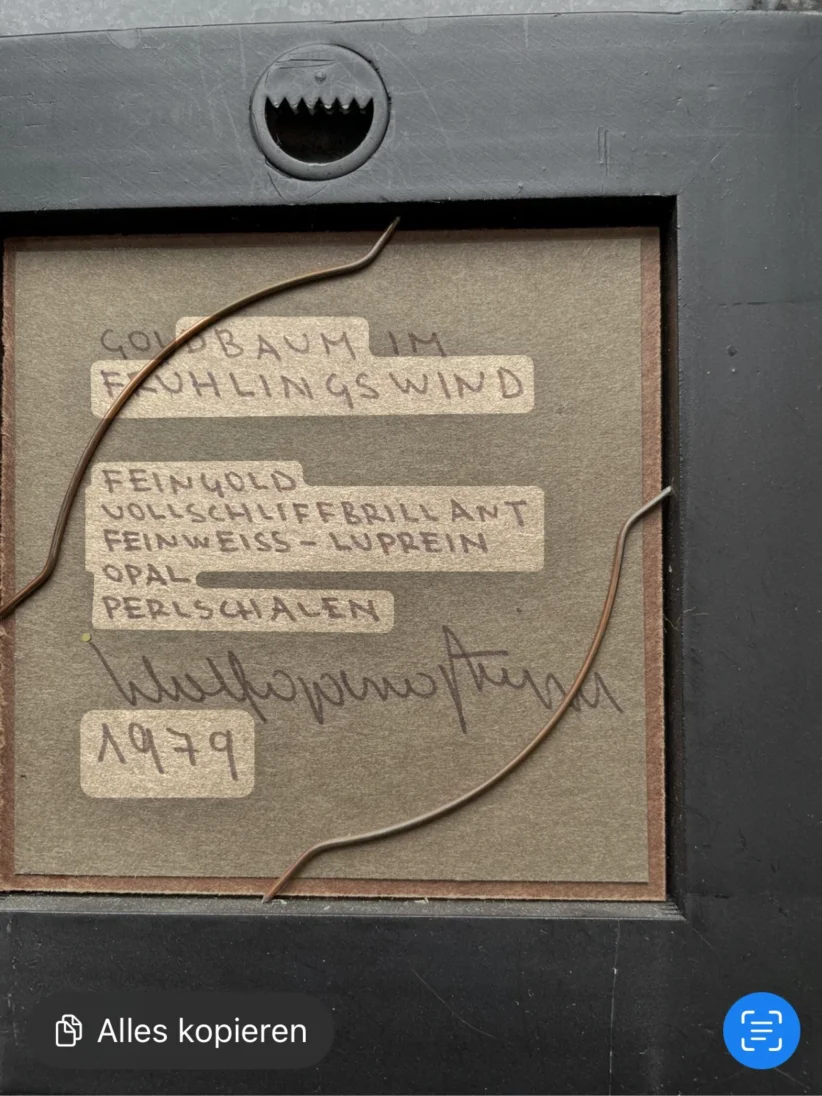 GOLDBAUM IM
FRÜHLINGSWIND
FEINGOLD
VOLLSCHLIFFBRILLANT
FEINWEISS-LUPREIN
OPAL
PERLSCHALEN
1979
Alles kopieren